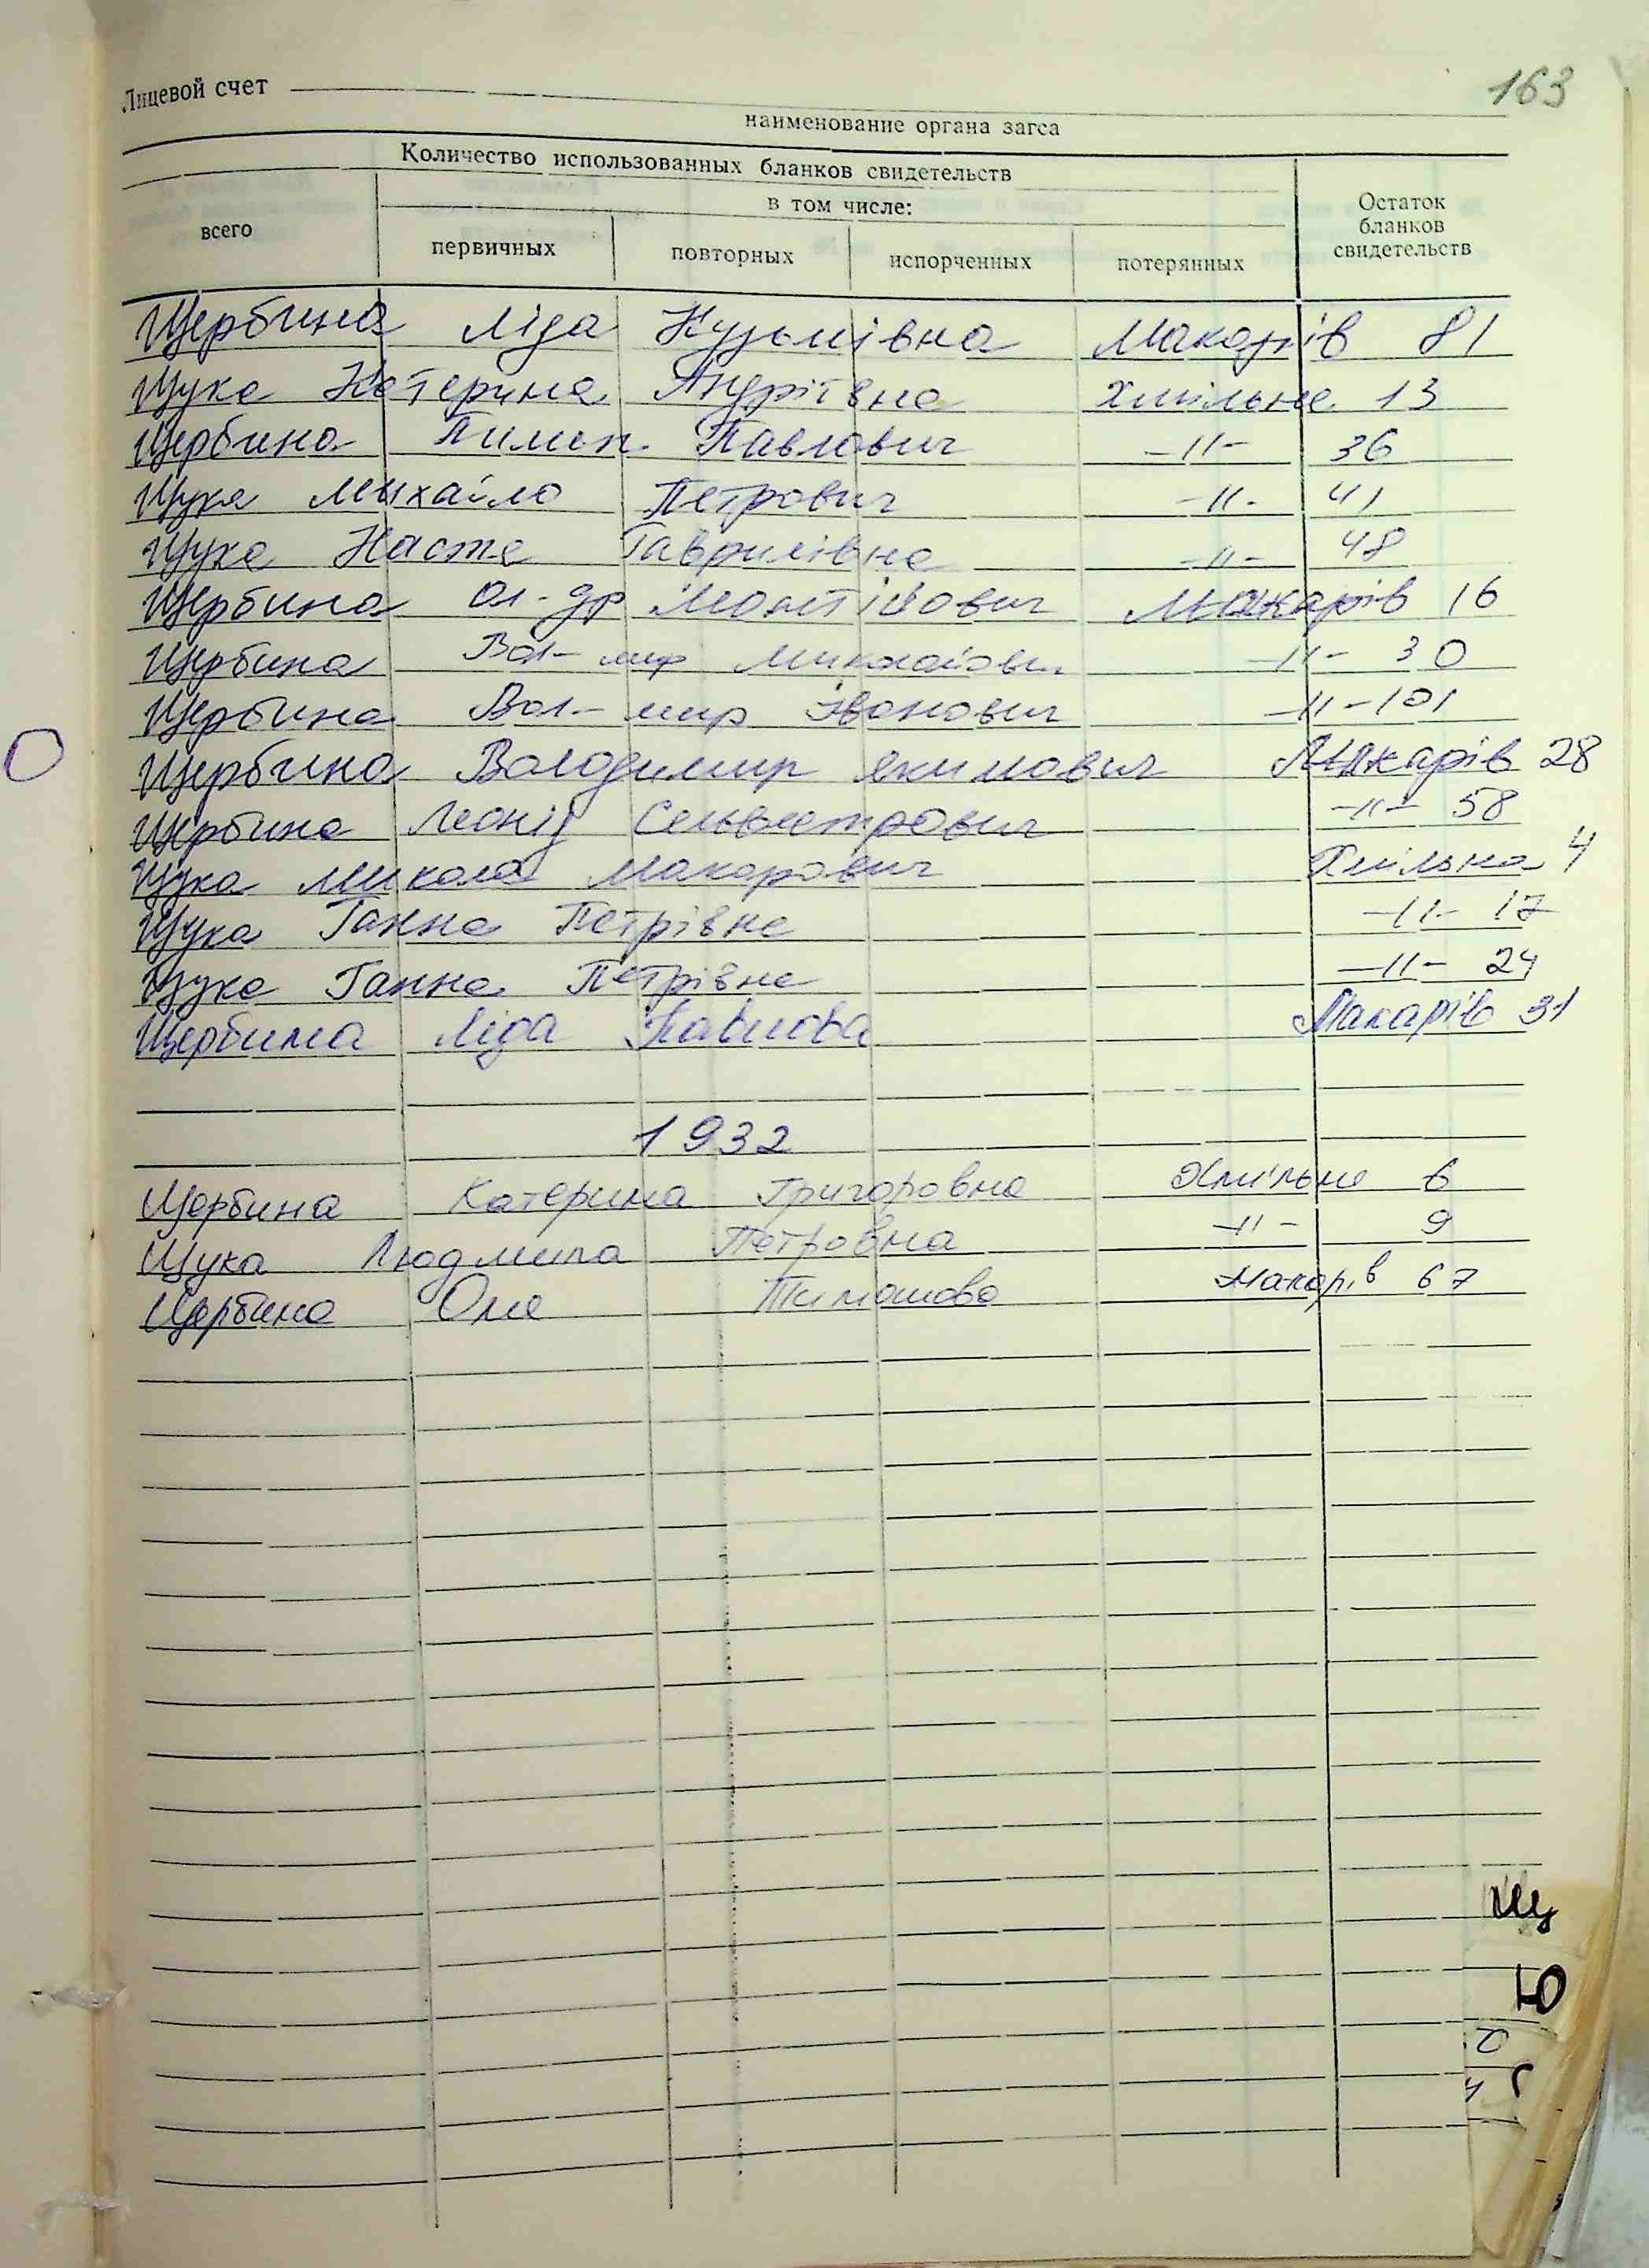 163
Лицевой счет
наименование органа загса
Количество использованных бланков свидетельств
в том числе:
Остаток бланков свидетельств
всего первичных повторных испорченных потерянных
Щербина Ліда Кузьмівна Макарів 81
Щука Катерина Андріївна Хмільна 13
Щербина Пилип Павлович -//- 36
Щука Михайло Петрович -//- 41
Щука Настя Гаврилівна -//- 48
Щербина Ол-др Макарів 16
Щербина Вол-мир Миколайович -//- 30
Щербина Вол-мир Іванович -//- 101
Щербина Володимир Якимович Макарів 28
Щербина Леонід Сельвестрович -//- 58
Щука Микола Макарович Хмільна 4
Щука Ганна Петрівна -//- 17
Щука Ганна Петрівна -//- 24
Щербина Ліда Павлова Макарів 31
1932
Щербина Катерина Григоровна Хмільна 6
Щука Людмила Петровна -//- 9
Щербина Оля Тимошова Макарів 67
Щ
Ю